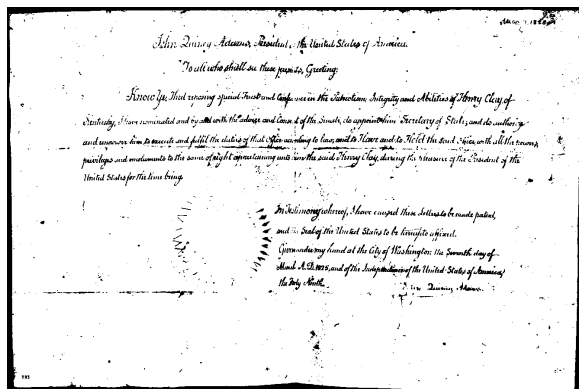 John Quincy Adams, President of the United States of America.
To all who shall see these presents, Greeting:
Know Ye, That reposing special Trust and Confidence in the Patriotism, Integrity and Abilities of Henry Clay of
Kentucky, I have nominated and by and with the advice and Consent of the Senate, do appoint him Secretary of State, and do authorize
and empower him to execute and fulfil the duties of that office according to law, and to Have and to Hold the said office, with all the powers,
privileges and emoluments to the same of right appertaining unto him the said Henry Clay, during the pleasure of the President of the
United States for the time being.
In Testimony whereof, I have caused these Letters to be made patent,
and the Seal of the United States to be hereunto affixed.
Given under my hand at the City of Washington the Seventh day of
March A.D. 1825, and of the Independence of the United States of America,
the Forty Ninth.
John Quincy Adams.